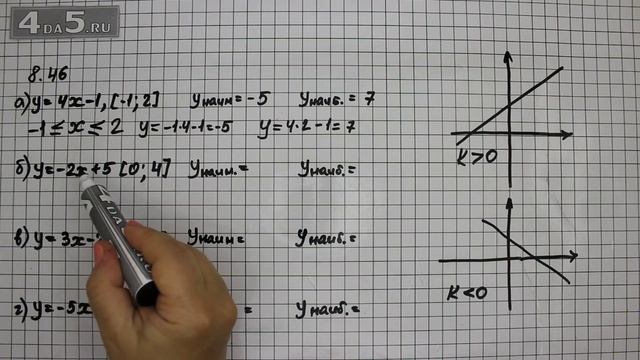 4DA5.RU
8.46
а) y = 4x-1, [-1; 2] yнаим = -5 yнаиб. = 7
-1 ≤ x ≤ 2 y = -1·4-1 = -5 y = 4·2-1 = 7
б) y = -2x+5 [0; 4] yнаим. = yнаиб. =
в) y = 3x- yнаим = yнаиб. =
г) y = -5x = yнаиб. =
K > 0
K < 0